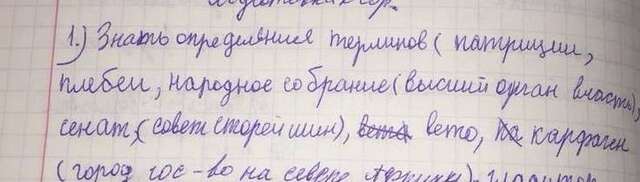 1.) Знать определения терминов (патриции,
плебеи, народное собрание (высший орган власти),
сенат, (совет старейшин), вето, карфаген
(город гос-во на севере Африки),